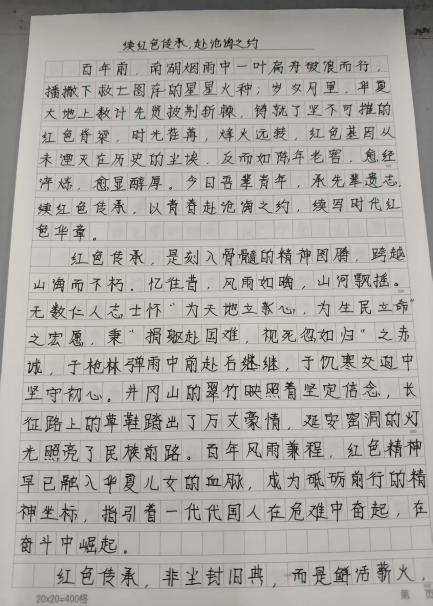 续红色传承,赴沧海之约
百年前，南湖烟雨中一叶扁舟破浪而行，
播撒下救亡图存的星星火种；岁岁月里，华夏
大地上数计先贤披荆斩棘，铸就了坚不可摧的
红色脊梁，时光荏苒，烽火远致，红色基因从
未湮灭在历史的尘埃，反而如陈年老窖，愈经
淬炼，愈显醇厚。今日吾辈青年，承先辈遗志，
续红色传承，以青春赴沧海之约，续写时代红
色华章。
红色传承，是刻入骨髓的精神图腾，跨越
山海而不朽。忆往昔，风雨如晦，山河飘摇。
无数仁人志士怀“为天地立心，为生民立命”
之宏愿，秉“捐躯赴国难，视死忽如归”之赤
诚，于枪林弹雨中前赴后继，于饥寒交迫中
坚守初心。井冈山的翠竹映照着坚定信念，长
征路上的草鞋踏出了万丈豪情，延安窑洞的灯
光照亮了民族前路。百年风雨兼程，红色精神
早已融入华夏儿女的血脉，成为砥砺前行的精
神坐标，指引着一代代国人在危难中奋起，在
奋斗中崛起。
红色传承，非尘封旧典，而是鲜活薪火，
20x20=400格
第 页